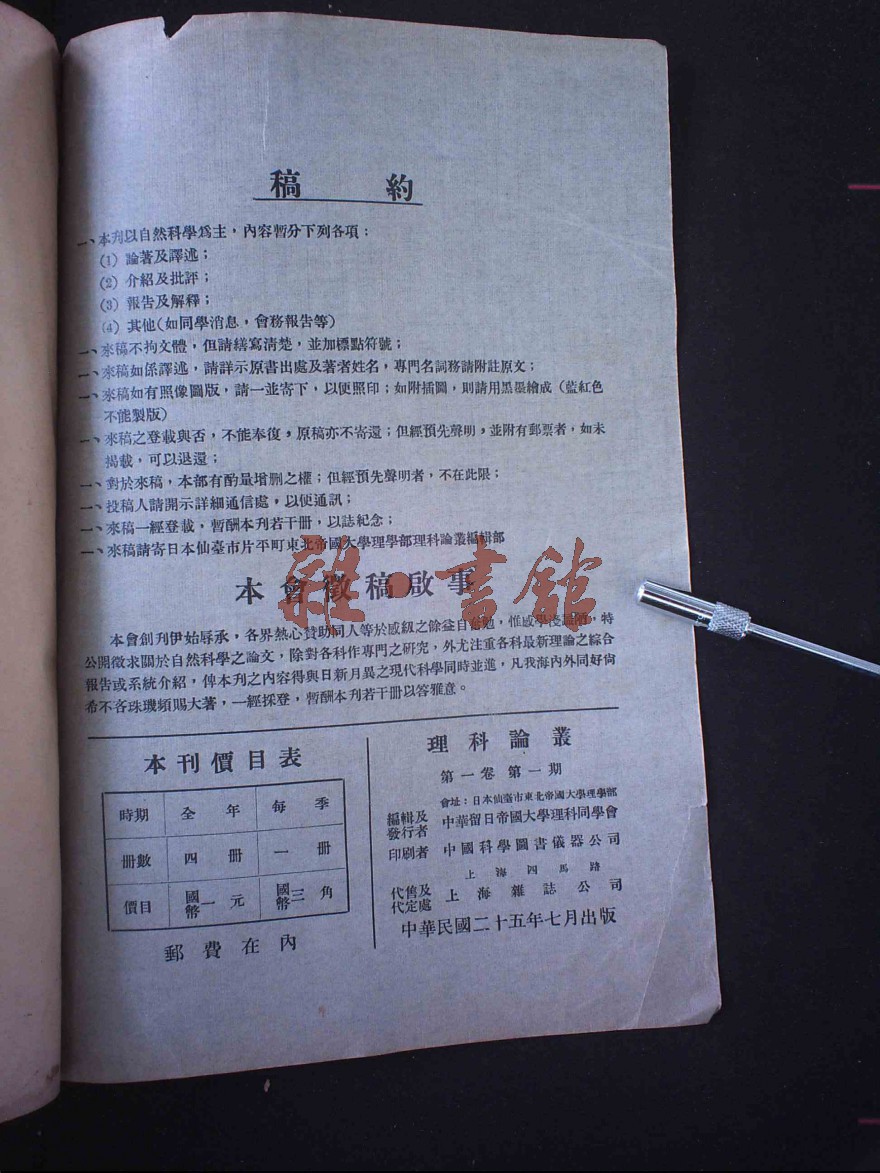 稿約
一、本刋以自然科學爲主，內容暫分下列各項：
(1) 論著及譯述；
(2) 介紹及批評；
(3) 報告及解釋；
(4) 其他(如同學消息，會務報告等)
一、來稿不拘文體，但請繕寫清楚，並加標點符號；
一、來稿如係譯述，請詳示原書出處及著者姓名，專門名詞務請附註原文；
一、來稿如有照像圖版，請一並寄下，以便照印；如附插圖，則請用黑墨繪成（藍紅色
不能製版）
一、來稿之登載與否，不能奉復，原稿亦不寄還；但經預先聲明，並附有郵票者，如未
揭載，可以退還；
一、對於來稿，本部有酌量增删之權；但經預先聲明者，不在此限；
一、投稿人請開示詳細通信處，以便通訊；
一、來稿一經登載，暫酬本刋若干册，以誌紀念；
一、來稿請寄日本仙臺市片平町東北帝國大學理學部理科論叢編輯部
本會徵稿啟事
雜·書館
本會創刋伊始辱承，各界熱心贊助同人等於感紉之餘益自奮勉，惟感學淺，特
公開徵求關於自然科學之論文，除對各科作專門之研究，外尤注重各科最新理論之綜合
報告或系統介紹，俾本刋之內容得與日新月異之現代科學同時並進，凡我海內外同好尙
希不吝珠璣頻賜大著，一經採登，暫酬本刋若干册以答雅意。
本刊價目表
時期 全年 每季
册數 四册 一册
價目 國幣一元 國幣三角
郵費在內
理科論叢
第一卷 第一期
會址：日本仙臺市東北帝國大學理學部
編輯及發行者 中華留日帝國大學理科同學會
印刷者 中國科學圖書儀器公司
上海四馬路
代售及代定處 上海雜誌公司
中華民國二十五年七月出版